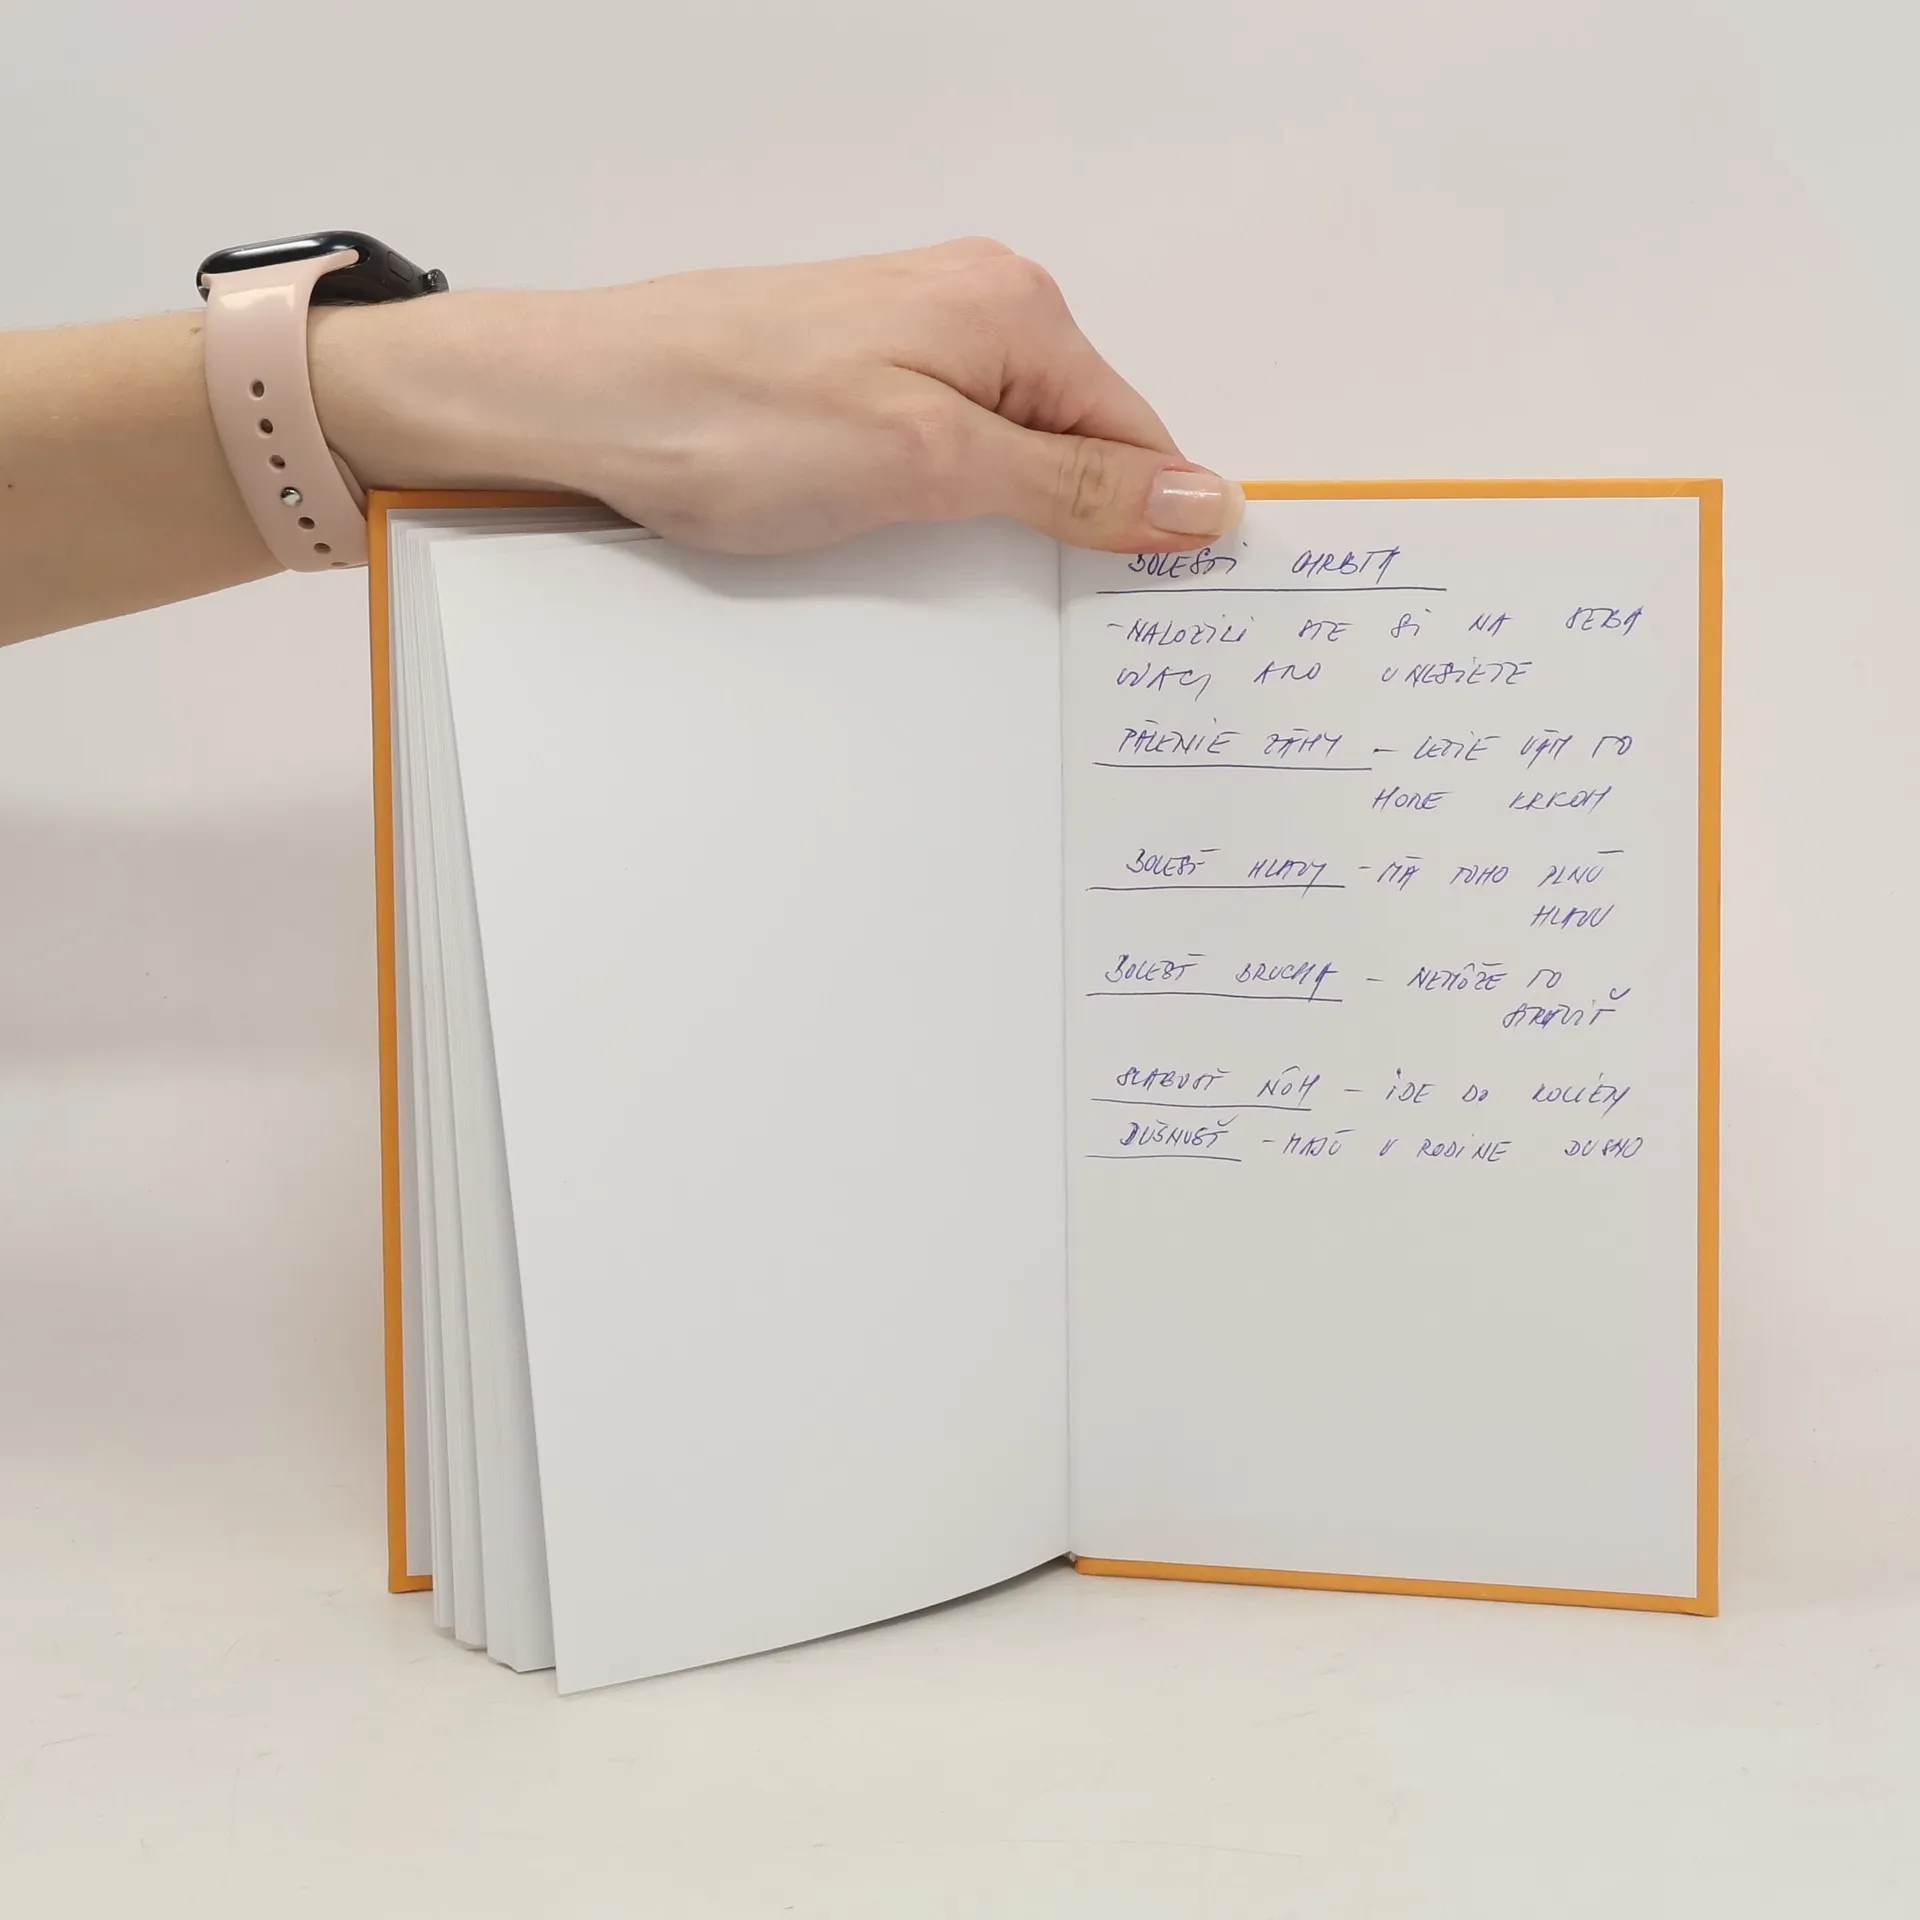 BOLESTI CHRBTA
- NALOŽILI STE SI NA SEBA
VIAC, AKO UNESIETE
PÁLENIE ZÁHY - LEZIE VÁM TO
HORE KRKOM
BOLESŤ HLAVY - MÁ TOHO PLNÚ
HLAVU
BOLESŤ BRUCHA - NEMÔŽE TO
STRÁVIŤ
SLABOSŤ NÔH - IDE DO KOLIEN
DUŠNOSŤ - MAJÚ V RODINE DUSNO